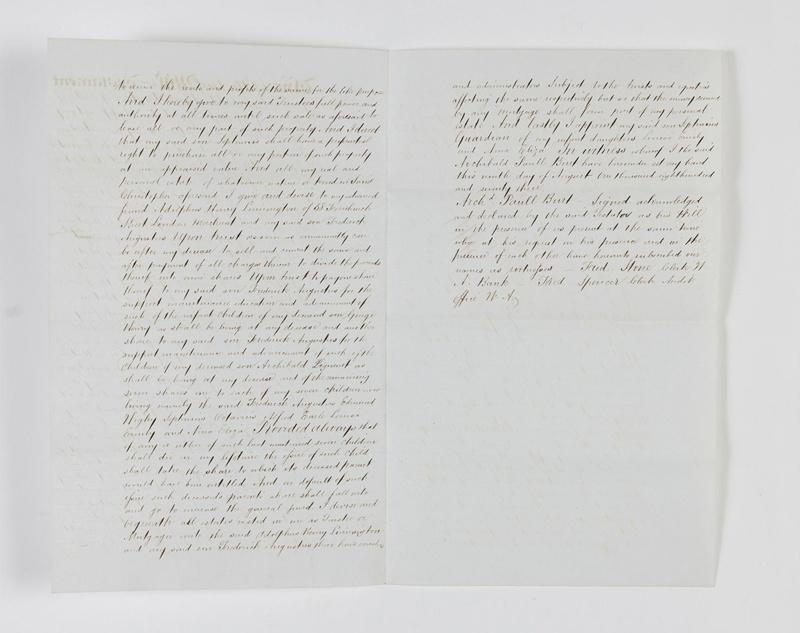 to receive the rents and profits of the same for the like purpose
And I hereby give to my said Trustees full power and
authority at all times until such sale as aforesaid to
lease all or any part of such property And I direct
that my said son Septimus shall have a preferential
right to purchase all or any portion of such property
at an appraised value And all my real and
personal estate of whatsoever nature or kind in Saint
Christopher aforesaid I give and devise to my
friend Adolphus Henry Livingston of 28 Fenchurch
Street London Merchant and my said son Frederick
Augustus Upon trust as soon as conveniently can
be after my decease to sell and convert the same and
after payment of all charges thereon to divide the proceeds
thereof into nine shares Upon trust to pay one share
thereof to my said son Frederick Augustus for the
support maintenance education and advancement of
such of the infant children of my deceased son George
Henry as shall be living at my decease and another
share to my said son Frederick Augustus for the
support maintenance and advancement of such of the
children of my deceased son Archibald Piguenit as
shall be living at my decease and of the remaining
seven shares one to each of my seven children now
living namely the said Frederick Augustus Edmund
Wigley Septimus Octavius Alfred Earle Louisa
Emily and Anna Eliza Provided always that
if any or either of such last mentioned seven children
shall die in my lifetime the issue of such child
shall take the share to which its deceased parent
would have been entitled And in default of such
issue such deceased's parents share shall fall into
and go to increase the general fund I devise and
bequeath all estates vested in me as Trustee or
Mortgagee unto the said Adolphus Henry Livingston
and my said son Frederick Augustus their heirs
and administrators Subject to the trusts and equities
affecting the same respectively but so that the money secured
by any mortgage shall form part of my personal
estate And lastly I appoint my said son Septimus
Guardian of my infant daughters Louisa Emily
and Anna Eliza In witness whereof I the said
Archibald Paull Burt have hereunto set my hand
this ninth day of August One thousand eight hundred
and seventy three
Archd Paull Burt — Signed acknowledged
and declared by the said Testator as his Will
in the presence of us present at the same time
who at his request in his presence and in the
presence of each other have hereunto subscribed our
names as witnesses — Fred Stone Clerk W
A. Bank — Fred Spencer Clerk Audit
Office W. A.